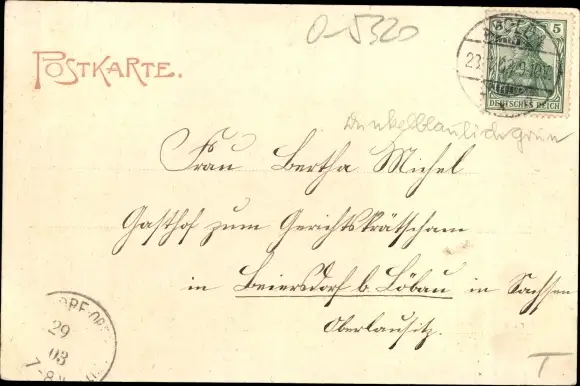 0-5320
5
DEUTSCHES REICH
POSTKARTE.
Dunkelbläulichgrün
Frau Bertha Michel
Gasthof zum Gerichtskrätscham
in Beiersdorf b. Löbau in Sachsen
Oberlausitz.
29
03
7-8
T